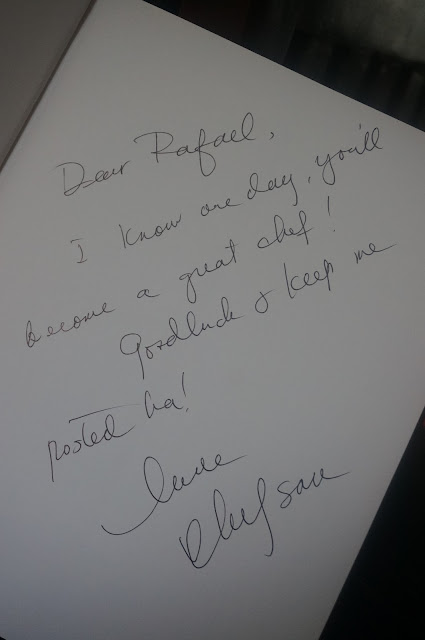 Dear Rafael,
I know one day, you'll
become a great chef!
Goodluck & keep me
posted ha!
love
Chef